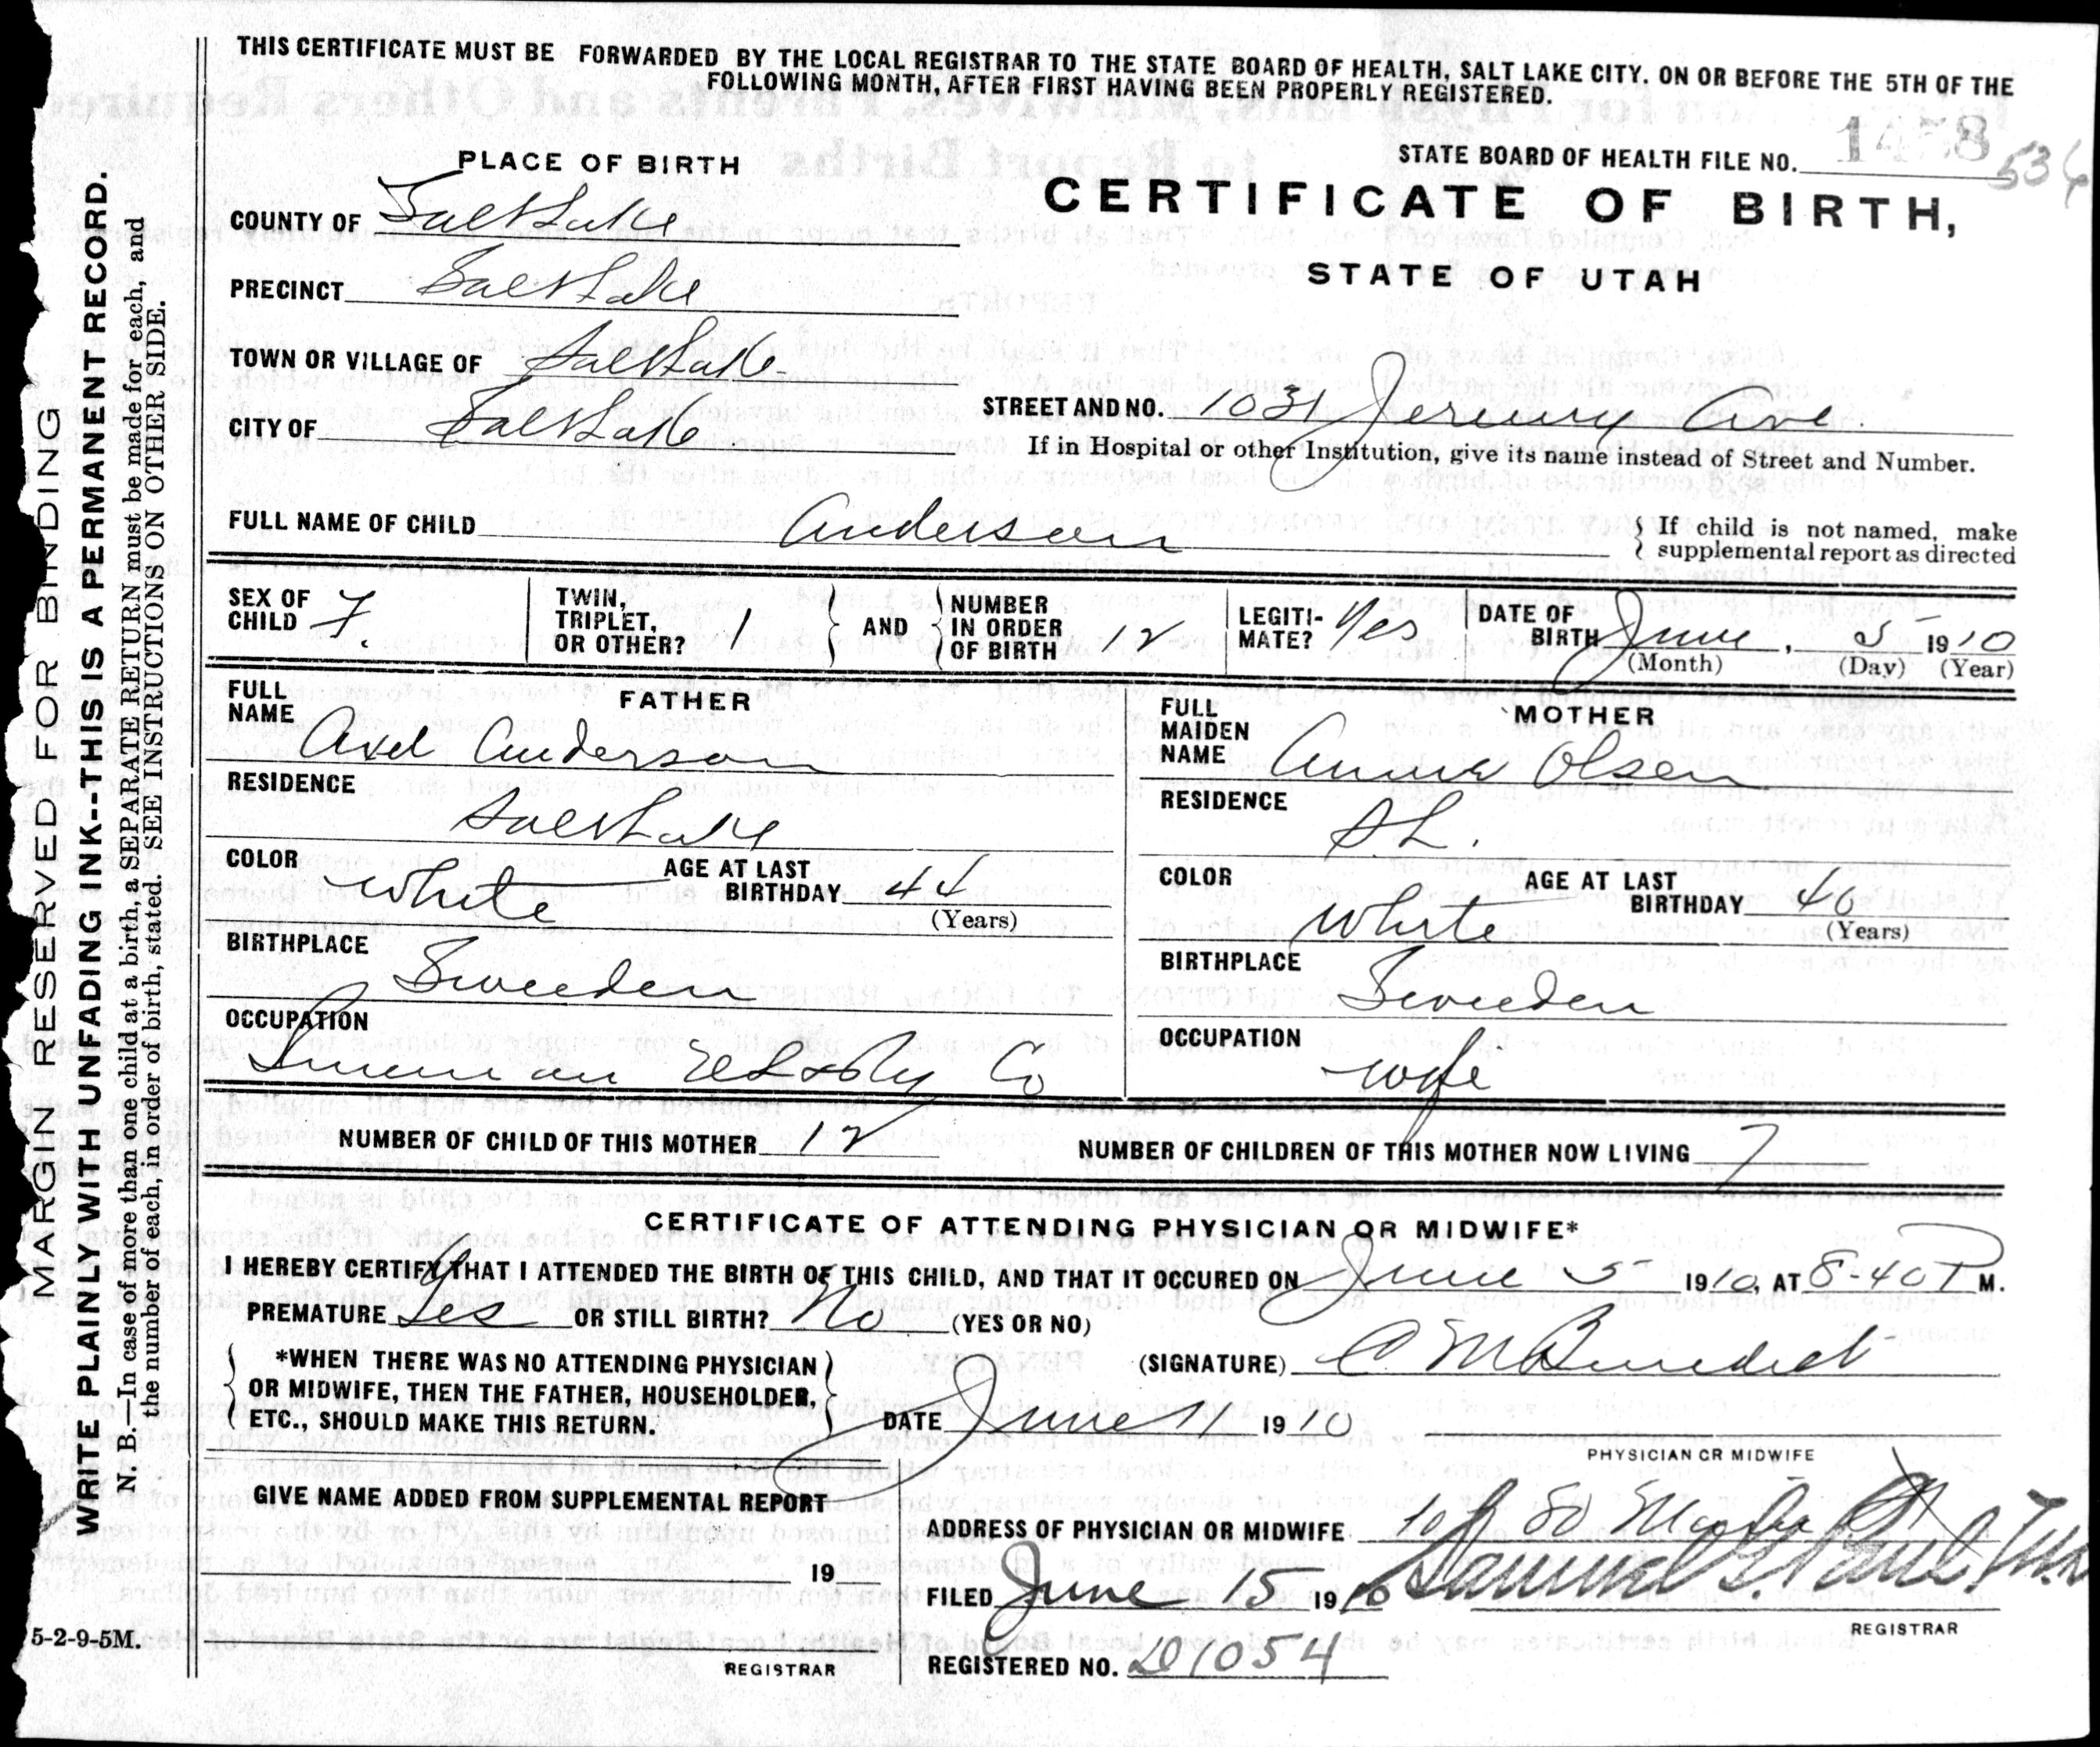 THIS CERTIFICATE MUST BE FORWARDED BY THE LOCAL REGISTRAR TO THE STATE BOARD OF HEALTH, SALT LAKE CITY. ON OR BEFORE THE 5TH OF THE
FOLLOWING MONTH, AFTER FIRST HAVING BEEN PROPERLY REGISTERED.
STATE BOARD OF HEALTH FILE NO. 536
CERTIFICATE OF BIRTH,
STATE OF UTAH
PLACE OF BIRTH
COUNTY OF Salt Lake
PRECINCT Salt Lake
TOWN OR VILLAGE OF Salt Lake
CITY OF Salt Lake
STREET AND NO. 1031 Jeremy Ave.
If in Hospital or other Institution, give its name instead of Street and Number.
FULL NAME OF CHILD Anderson
If child is not named, make
supplemental report as directed
SEX OF CHILD F.
TWIN, TRIPLET, OR OTHER? 1
AND
NUMBER IN ORDER OF BIRTH 12
LEGITI-MATE? Yes
DATE OF BIRTH June, 5 1910
(Month) (Day) (Year)
FATHER
FULL NAME Axel Anderson
RESIDENCE Salt Lake
COLOR White AGE AT LAST BIRTHDAY 44
(Years)
BIRTHPLACE Sweeden
OCCUPATION Lineman & Ry Co
MOTHER
FULL MAIDEN NAME Annie Olsen
RESIDENCE S L.
COLOR White AGE AT LAST BIRTHDAY 40
(Years)
BIRTHPLACE Sweeden
OCCUPATION wife
NUMBER OF CHILD OF THIS MOTHER 12 NUMBER OF CHILDREN OF THIS MOTHER NOW LIVING 7
CERTIFICATE OF ATTENDING PHYSICIAN OR MIDWIFE*
I HEREBY CERTIFY THAT I ATTENDED THE BIRTH OF THIS CHILD, AND THAT IT OCCURED ON June 5 1910, AT 8-40 P M.
PREMATURE Yes OR STILL BIRTH? No (YES OR NO)
*WHEN THERE WAS NO ATTENDING PHYSICIAN
OR MIDWIFE, THEN THE FATHER, HOUSEHOLDER,
ETC., SHOULD MAKE THIS RETURN.
(SIGNATURE) C M Benedict
DATE June 1910
PHYSICIAN OR MIDWIFE
GIVE NAME ADDED FROM SUPPLEMENTAL REPORT
19
REGISTRAR
ADDRESS OF PHYSICIAN OR MIDWIFE
FILED June 15 1910 Samuel G. Paul
REGISTRAR
REGISTERED NO. D1054
5-2-9-5M.
MARGIN RESERVED FOR BINDING
WRITE PLAINLY WITH UNFADING INK--THIS IS A PERMANENT RECORD.
N. B.—In case of more than one child at a birth, a SEPARATE RETURN must be made for each, and
the number of each, in order of birth, stated. SEE INSTRUCTIONS ON OTHER SIDE.